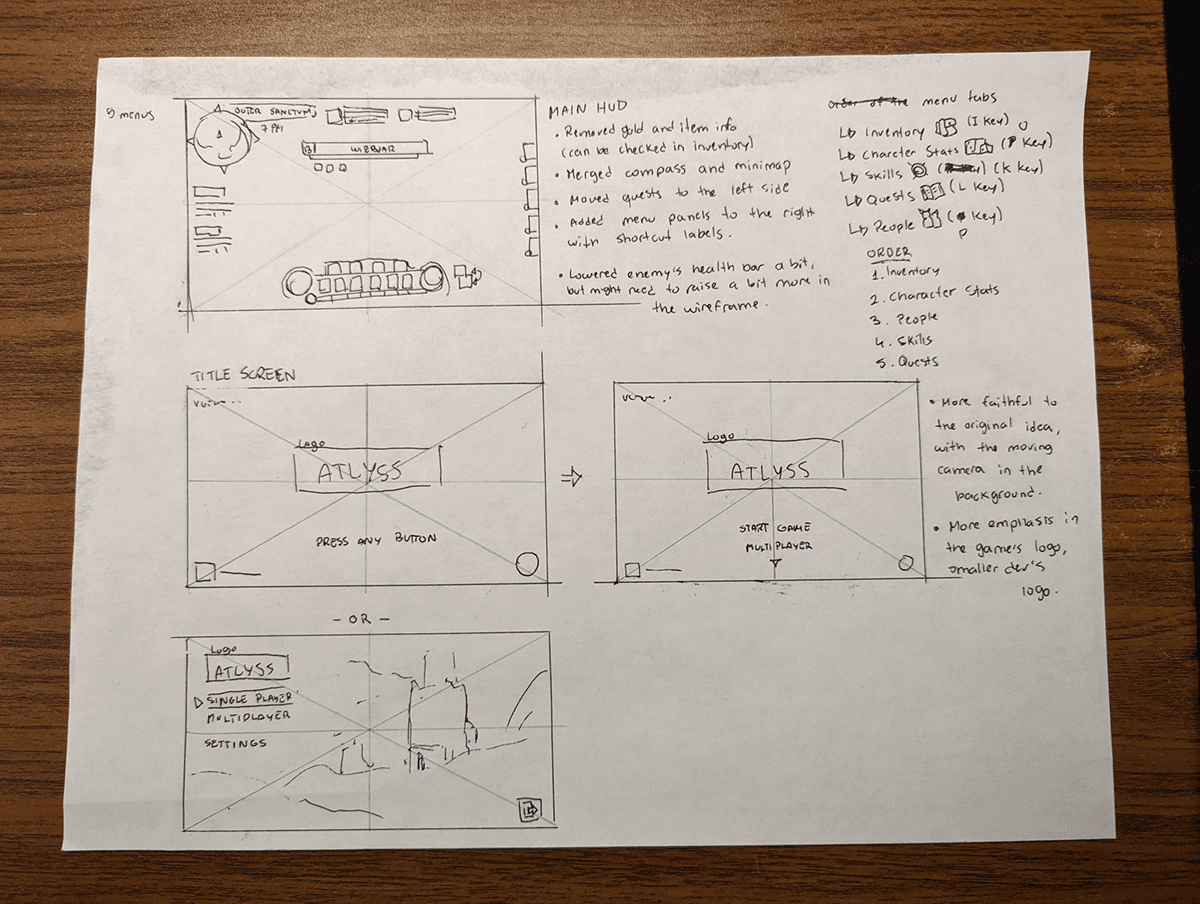 5 menus
OUTER SANCTUM
7 PM
MAIN HUD
• Removed gold and item info
(can be checked in inventory)
• Merged compass and minimap
• Moved quests to the left side
• Added menu panels to the right
with shortcut labels.
• Lowered enemy's health bar a bit,
but might need to raise a bit more in
the wireframe.
Order of the menu tabs
Inventory (I Key)
Character Stats (O Key)
Skills (K Key)
Quests (L Key)
People (P Key)
ORDER
1. Inventory
2. Character Stats
3. People
4. Skills
5. Quests
TITLE SCREEN
Logo
ATLYSS
PRESS ANY BUTTON
Logo
ATLYSS
START GAME
MULTIPLAYER
• More faithful to
the original idea,
with the moving
camera in the
background.
• More emphasis in
the game's logo,
smaller dev's
logo.
- OR -
Logo
ATLYSS
SINGLE PLAYER
MULTIPLAYER
SETTINGS